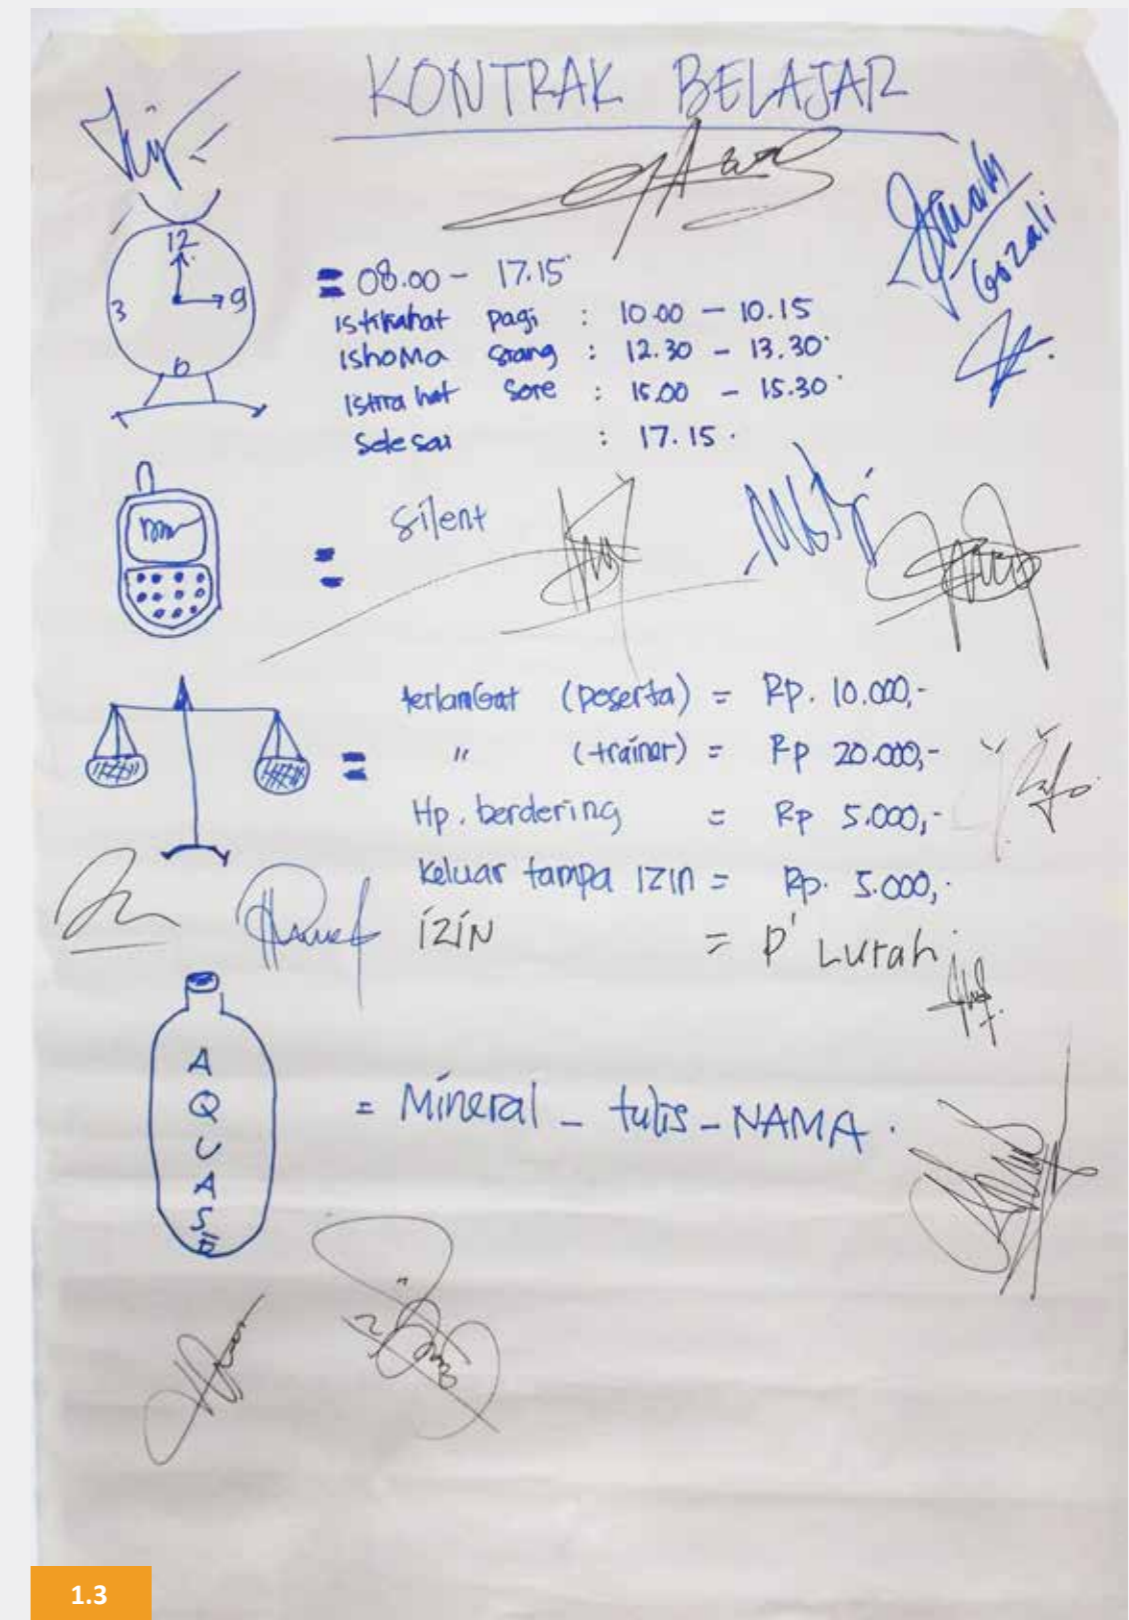 KONTRAK BELAJAR
12
3
9
6
= 08.00 - 17.15
Istirahat pagi : 10.00 - 10.15
ISHOMA siang : 12.30 - 13.30
Istirahat Sore : 15.00 - 15.30
Selesai : 17.15.
Gozali
= Silent
= terlambat (peserta) = Rp. 10.000,-
" (trainer) = Rp 20.000,-
Hp. berdering = Rp 5.000,-
Keluar tampa IZIN = Rp. 5.000,-
IZIN = P' Lurah
AQUASE
= Mineral - tulis - NAMA.
1.3